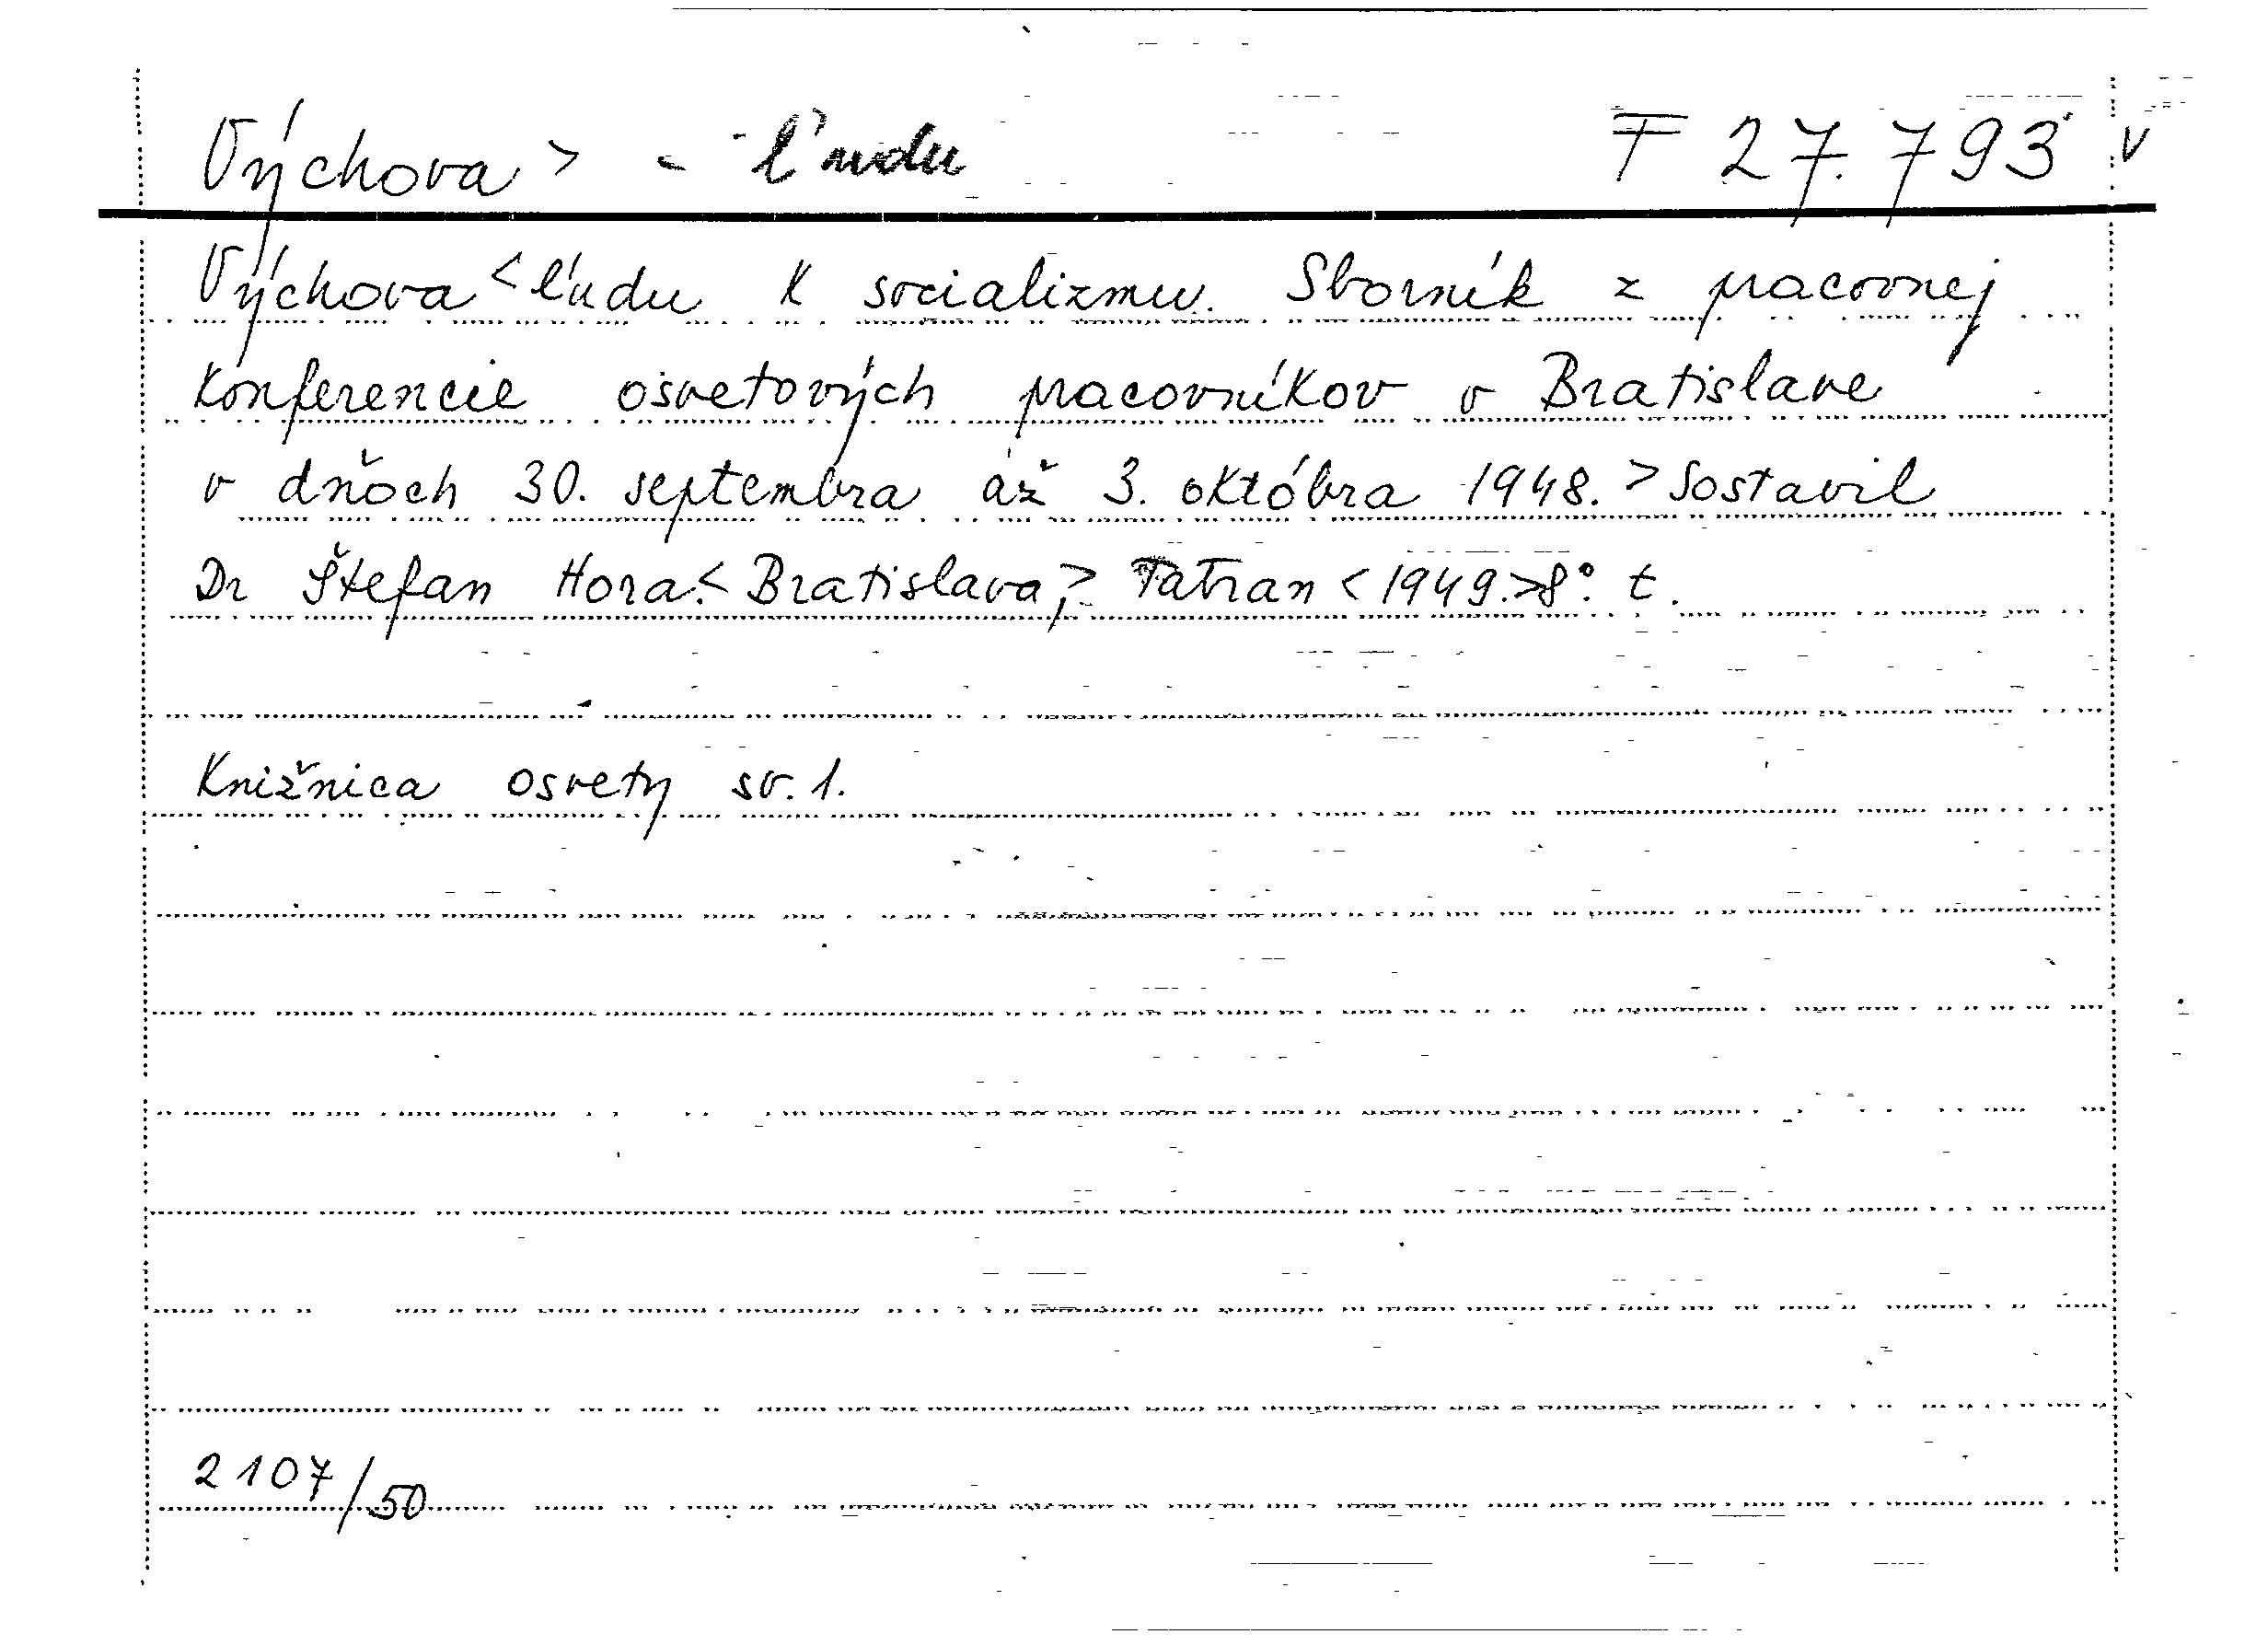 Výchova > - ľudu F 27.793 v
Výchova < ľudu k socializmu. Sborník z pracovnej
konferencie osvetových pracovníkov v Bratislave
v dňoch 30. septembra až 3. októbra 1948. > Sostavil
Dr Štefan Hora. < Bratislava, > Tatran < 1949. > 8°. t.
Knižnica osvety sv. 1.
2107/50